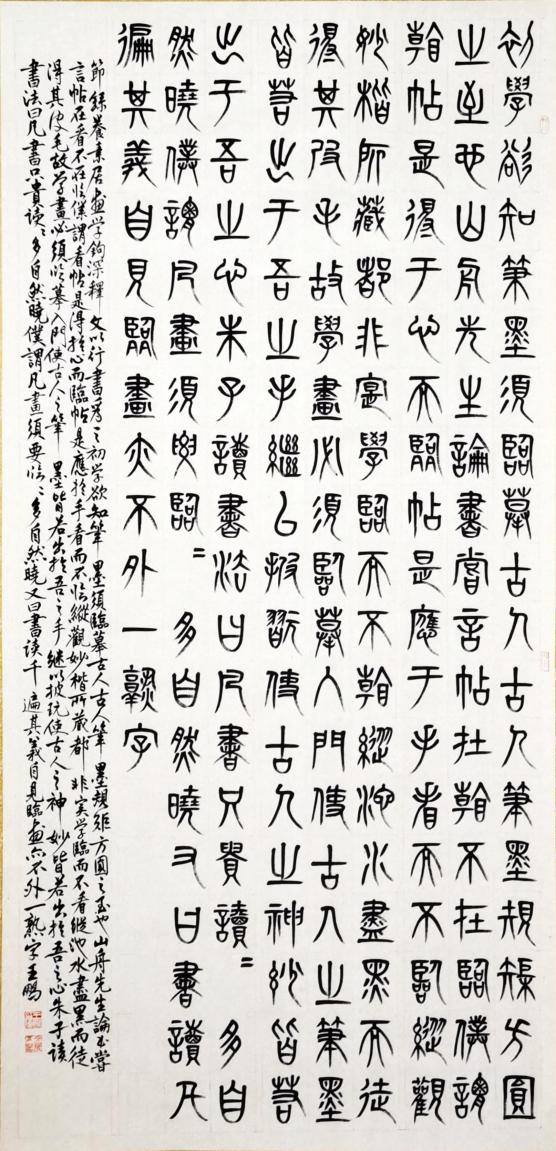 初學欲知筆墨須臨摹古人古人筆墨規矩方圓
之至也山舟先生論書嘗言帖在看不在臨僕謂
看帖是得于心而臨帖是應于手看而不臨縱觀
妙楷所藏都非寔學臨而不看縱池水盡黑而徒
得其皮毛故學畫必須臨摹入門使古人之筆墨
皆若出于吾之手繼以披翫使古人之神妙皆若
出于吾之心朱子讀書法曰凡書只貴讀〻多自
然曉僕謂凡畫須要臨〻多自然曉又曰書讀千
遍其義自見臨畫亦不外一熟字
節録養素居畫學鉤深釋文以行書為之初學欲知筆墨須臨摹古人古人筆墨規矩方圓之至也山舟先生論書嘗
言帖在看不在临僕謂看帖是得於心而臨帖是應於手看而不临縱觀妙楷所藏都非实学臨而不看縱池水盡黑而徒
得其皮毛故学畫必須临摹入門使古人之筆墨皆若出於吾之手继以披玩使古人之神妙皆若出於吾之心朱子读
書法曰凡書只贵读〻多自然曉僕謂凡畫須要临〻多自然曉又曰書读千遍其義自見臨畫亦不外一熟字王鵬